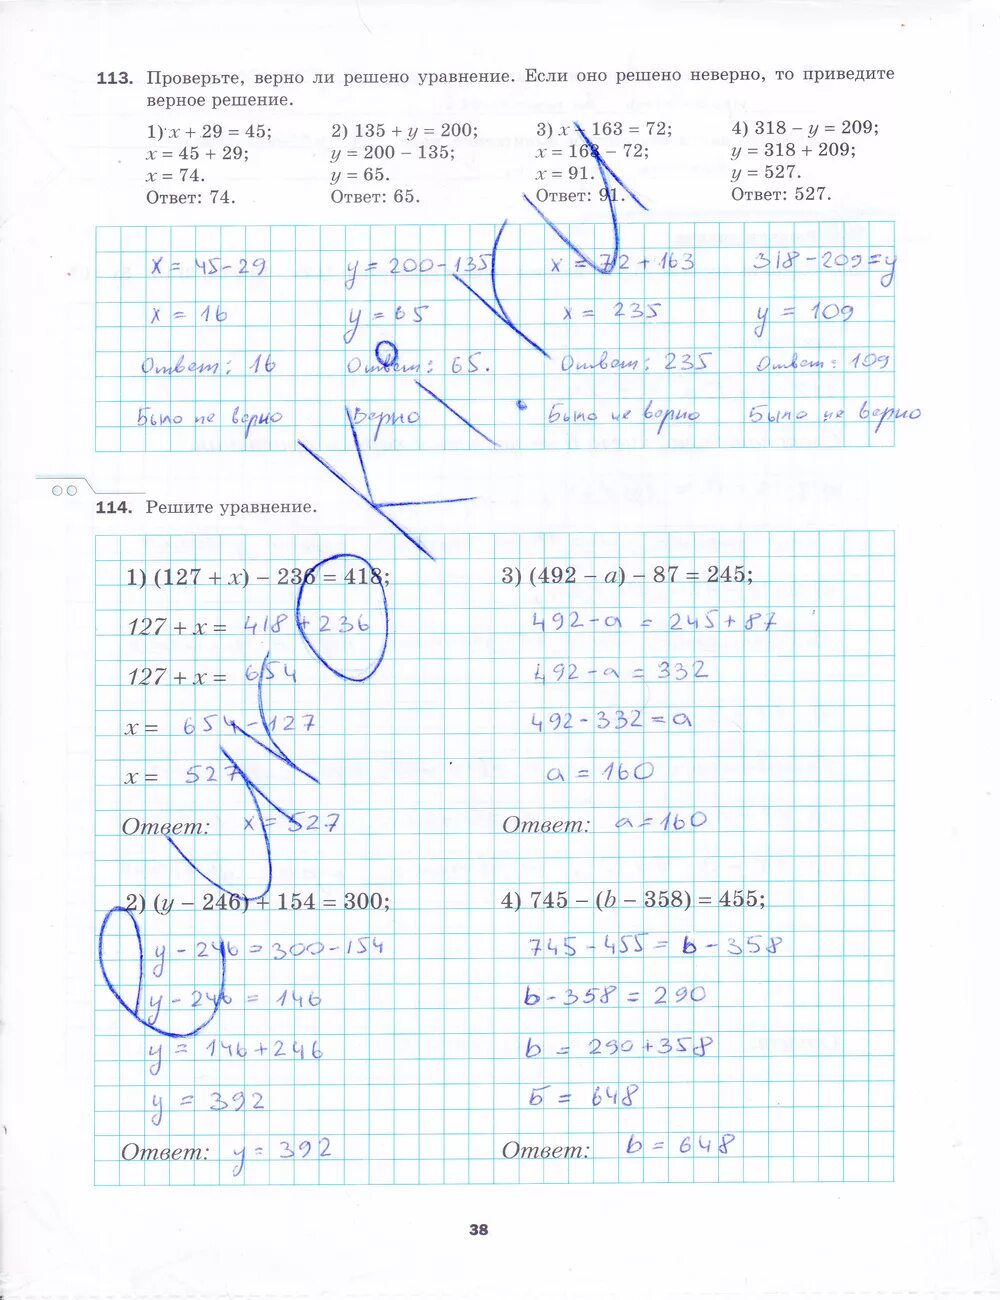 113. Проверьте, верно ли решено уравнение. Если оно решено неверно, то приведите
верное решение.
1) x + 29 = 45;
x = 45 + 29;
x = 74.
Ответ: 74.
2) 135 + y = 200;
y = 200 − 135;
y = 65.
Ответ: 65.
3) x − 163 = 72;
x = 163 − 72;
x = 91.
Ответ: 91.
4) 318 − y = 209;
y = 318 + 209;
y = 527.
Ответ: 527.
x = 45 - 29
x = 16
Ответ: 16
Было не верно
y = 200 - 135
y = 65
Ответ: 65.
Верно
x = 72 + 163
x = 235
Ответ: 235
Было не верно
318 - 209 = y
y = 109
Ответ: 109
Было не верно
114. Решите уравнение.
1) (127 + x) − 236 = 418;
127 + x = 418 + 236
127 + x = 654
x = 654 - 127
x = 527
Ответ: x = 527
3) (492 − a) − 87 = 245;
492 - a = 245 + 87
492 - a = 332
492 - 332 = a
a = 160
Ответ: a = 160
2) (y − 246) + 154 = 300;
y - 246 = 300 - 154
y - 246 = 146
y = 146 + 246
y = 392
Ответ: y = 392
4) 745 − (b − 358) = 455;
745 - 455 = b - 358
b - 358 = 290
b = 290 + 358
Б = 648
Ответ: b = 648
38